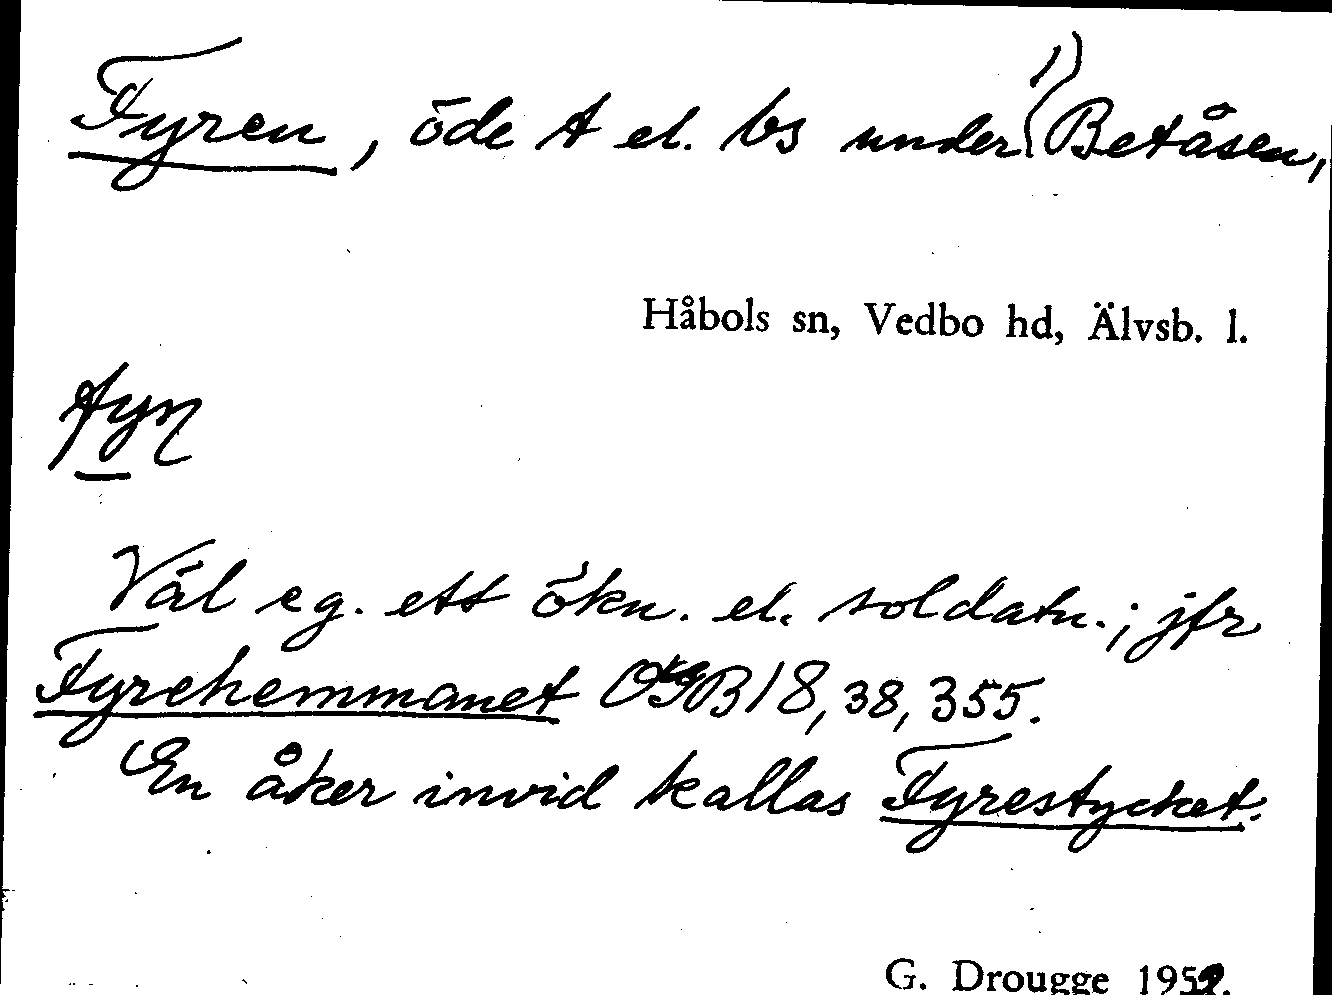 Fyren, öde t el. bs under 1)(Betåsen,
Håbols sn, Vedbo hd, Älvsb. l.
fyṇ
Väl eg. ett ökn. el. soldatn.; jfr
Fyrehemmanet OGB 18, 38, 355.
En åker invid kallas Fyrestycket.
G. Drougge 1952.